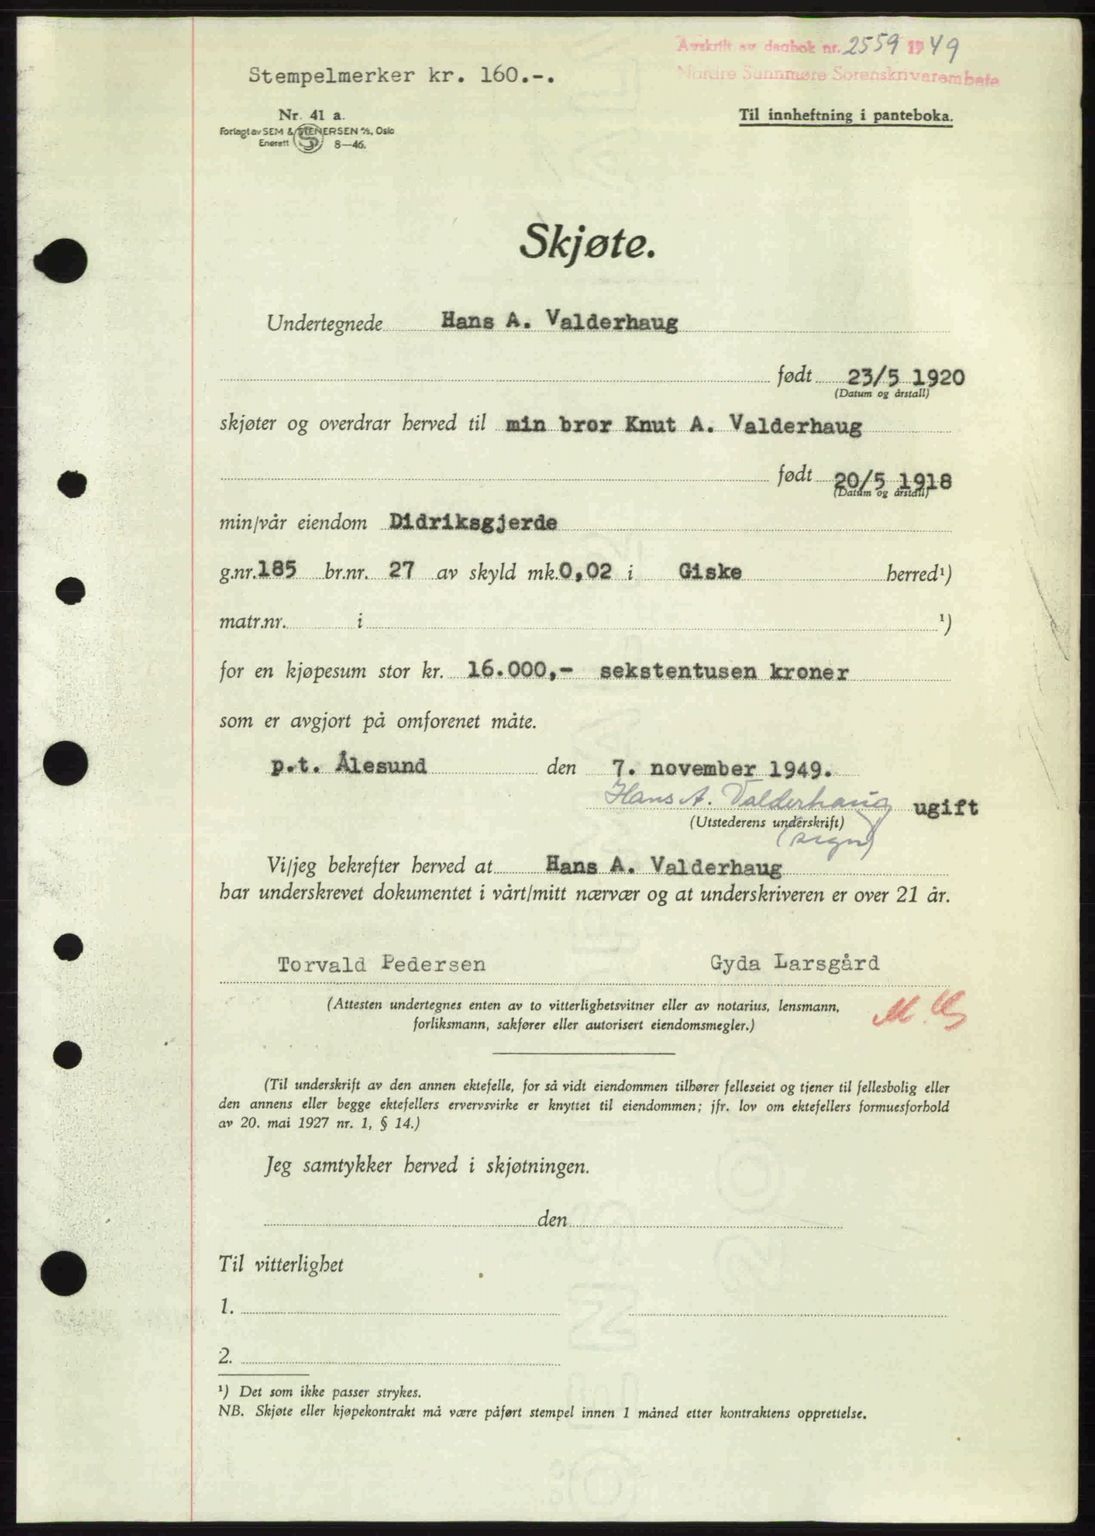 Avskrift av dagbok nr. 2559 1949
Nordre Sunnmøre Sorenskrivarembete
Stempelmerker kr. 160.-.
Nr. 41 a.
Til innheftning i panteboka.
Forlagt av SEM & STENERSEN A/S, Oslo
Enerett 8—46.
Skjøte.
Undertegnede Hans A. Valderhaug
født 23/5 1920
(Datum og årstall)
skjøter og overdrar herved til min bror Knut A. Valderhaug
født 20/5 1918
(Datum og årstall)
min/vår eiendom Didriksgjerde
g.nr. 185 br.nr. 27 av skyld mk. 0,02 i Giske herred¹)
matr.nr. i ¹)
for en kjøpesum stor kr. 16.000,- sekstentusen kroner
som er avgjort på omforenet måte.
p.t. Ålesund den 7. november 1949.
Hans A. Valderhaug ugift
(Utstederens underskrift)
(sign)
Vi/jeg bekrefter herved at Hans A. Valderhaug
har underskrevet dokumentet i vårt/mitt nærvær og at underskriveren er over 21 år.
Torvald Pedersen Gyda Larsgård
(Attesten undertegnes enten av to vitterlighetsvitner eller av notarius, lensmann,
forliksmann, sakfører eller autorisert eiendomsmegler.)
(Til underskrift av den annen ektefelle, for så vidt eiendommen tilhører felleseiet og tjener til fellesbolig eller
den annens eller begge ektefellers ervervsvirke er knyttet til eiendommen; jfr. lov om ektefellers formuesforhold
av 20. mai 1927 nr. 1, § 14.)
Jeg samtykker herved i skjøtningen.
den
Til vitterlighet
1.
2.
¹) Det som ikke passer strykes.
NB. Skjøte eller kjøpekontrakt må være påført stempel innen 1 måned etter kontraktens opprettelse.